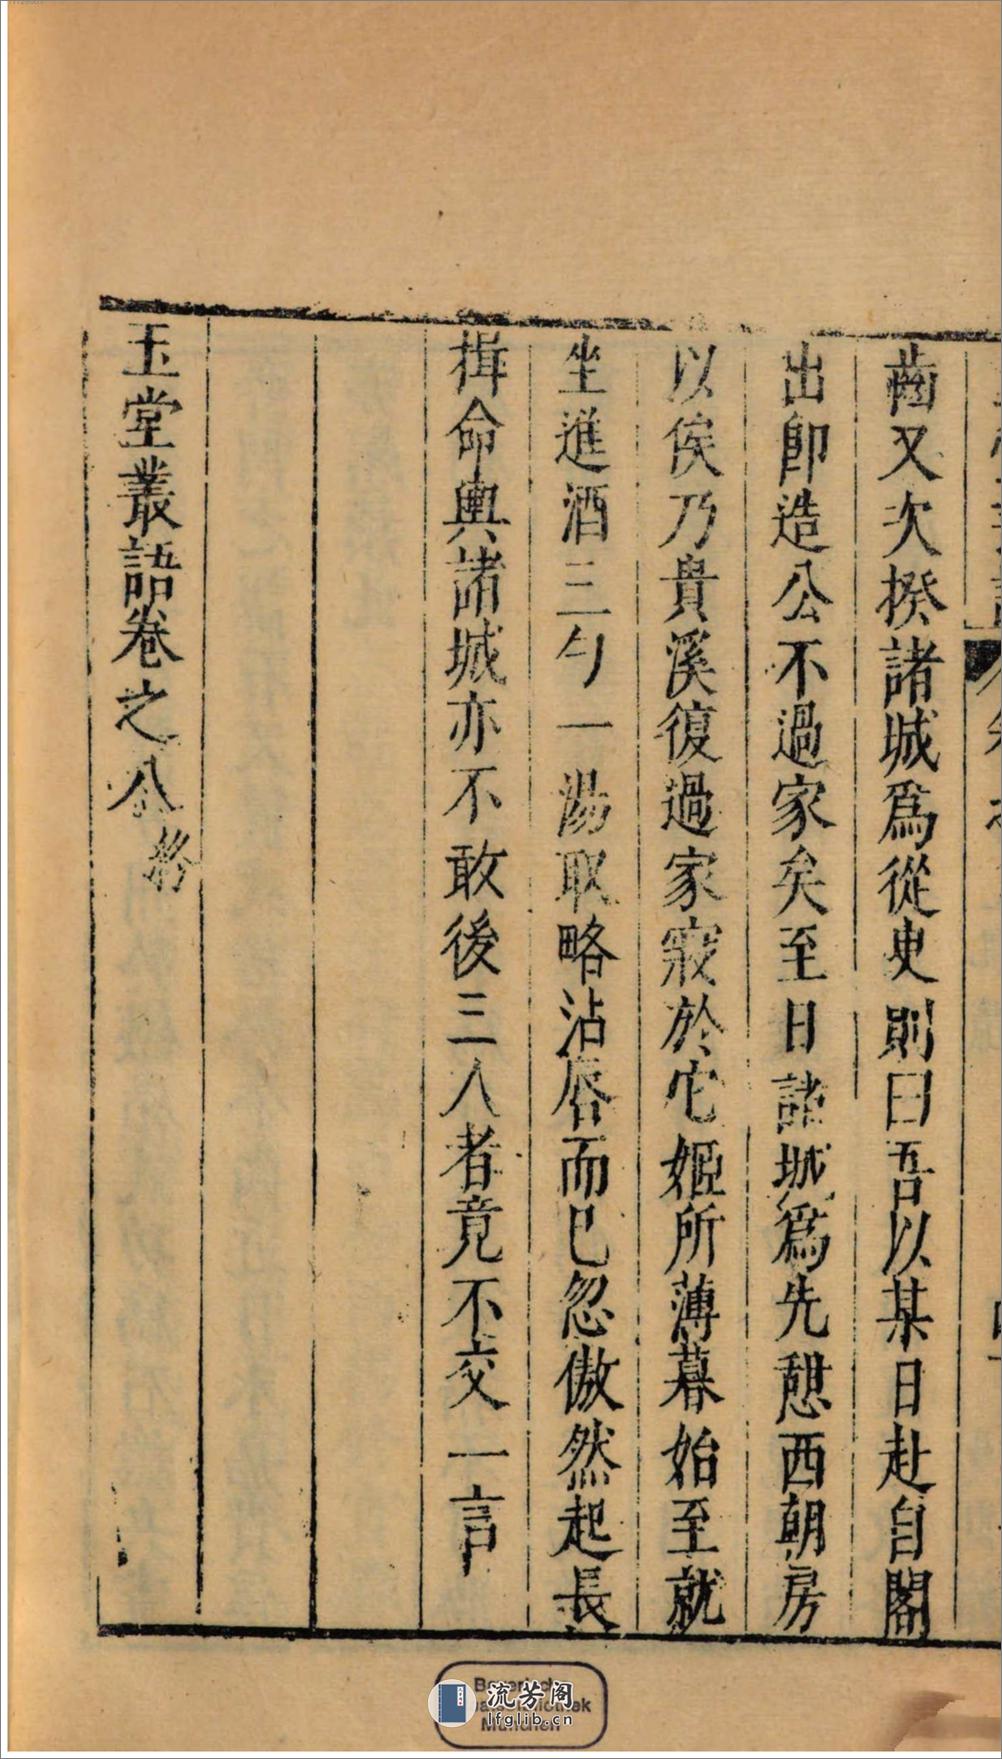 齒又次揆諸城爲從史則曰吾以某日赴自閣
出即造公不過家矣至日諸城爲先憩西朝房
以俟乃貴溪復過家寢於它姬所薄暮始至就
坐進酒三勺一湯取略沾唇而已忽傲然起長
揖命輿諸城亦不敢後三人者竟不交一言
玉堂叢語卷之八終
流芳阁
lfglib.cn